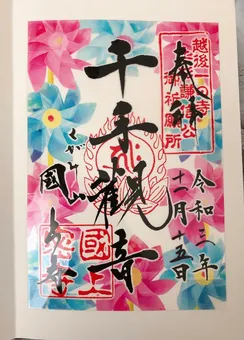 奉拝
越後
の寺
謙信公
御祈願所
令和三年
十一月十五日
千手觀音
くがみ
國上山
國上